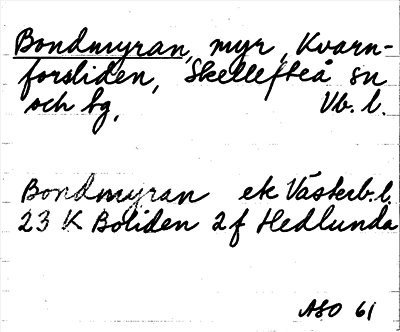 Bondmyran, myr, Kvarn-
forsliden, Skellefteå sn
och tg, Vb. l.
Bondmyran ek Västerb. l.
23 K Boliden 2f Hedlunda
ASO 61